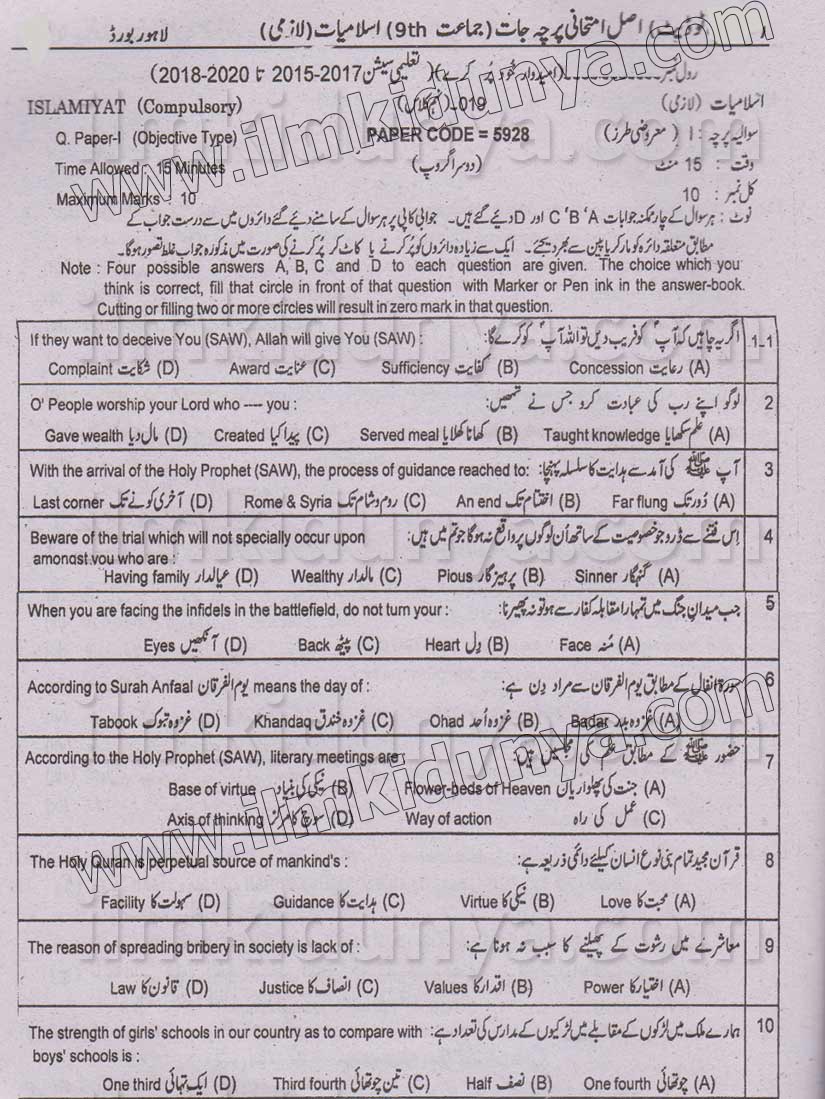 (ٹوڈیٹ) اصل امتحانی پرچہ جات (جماعت 9th) اسلامیات (لازمی) لاہور بورڈ
رول نمبر (امیدوار خود پُر کرے) (تعلیمی سیشن 2015-2017 تا 2018-2020)
اسلامیات (لازمی) 019 ISLAMIYAT (Compulsory)
سوالیہ پرچہ : I (معروضی طرز) PAPER CODE = 5928 Q. Paper-I (Objective Type)
وقت : 15 منٹ (دوسرا گروپ) Time Allowed : 15 Minutes
کل نمبر : 10 Maximum Marks : 10
نوٹ : ہر سوال کے چار ممکنہ جوابات A‘ B‘ C اور D دیئے گئے ہیں۔ جوابی کاپی پر ہر سوال کے سامنے دیئے گئے دائروں میں سے درست جواب کے
مطابق متعلقہ دائرہ کو مارکر یا پین سے بھر دیجئے۔ ایک سے زیادہ دائروں کو پُر کرنے یا کاٹ کر پُر کرنے کی صورت میں مذکورہ جواب غلط تصور ہوگا۔
Note : Four possible answers A, B, C and D to each question are given. The choice which you
think is correct, fill that circle in front of that question with Marker or Pen ink in the answer-book.
Cutting or filling two or more circles will result in zero mark in that question.
1-1 اگر یہ چاہیں کہ آپ کو فریب دیں تو اللہ آپ کو کرے گا: If they want to deceive You (SAW), Allah will give You (SAW) :
(A) رعایت Concession (B) کفایت Sufficiency (C) عنایت Award (D) شکایت Complaint
2 لوگو اپنے رب کی عبادت کرو جس نے تمھیں: O' People worship your Lord who ---- you :
(A) علم سکھایا Taught knowledge (B) کھانا کھلایا Served meal (C) پیدا کیا Created (D) مال دیا Gave wealth
3 آپ ﷺ کی آمد سے ہدایت کا سلسلہ پہنچا: With the arrival of the Holy Prophet (SAW), the process of guidance reached to:
(A) دُور تک Far flung (B) اختتام تک An end (C) روم و شام تک Rome & Syria (D) آخری کونے تک Last corner
4 اِس فتنے سے ڈرو جو خصوصیت کے ساتھ اُن لوگوں پر واقع نہ ہوگا جو تم میں ہیں: Beware of the trial which will not specially occur upon
amongst you who are :
(A) گنہگار Sinner (B) پرہیز گار Pious (C) مالدار Wealthy (D) عیالدار Having family
5 جب میدانِ جنگ میں تمہارا مقابلہ کفار سے ہو تو نہ پھیرنا: When you are facing the infidels in the battlefield, do not turn your :
(A) مُنہ Face (B) دِل Heart (C) پیٹھ Back (D) آنکھیں Eyes
6 سورۃ انفال کے مطابق یوم الفرقان سے مراد دِن ہے: According to Surah Anfaal یوم الفرقان means the day of :
(A) غزوہ بدر Badar (B) غزوہ اُحد Ohad (C) غزوہ خندق Khandaq (D) غزوہ تبوک Tabook
7 حضور ﷺ کے مطابق علم کی مجلسیں ہیں: According to the Holy Prophet (SAW), literary meetings are :
(A) جنت کی پھلواریاں Flower-beds of Heaven (B) نیکی کی بنیاد Base of virtue
(C) عمل کی راہ Way of action (D) سوچ کا مرکز Axis of thinking
8 قرآن مجید تمام بنی نوع انسان کیلئے دائمی ذریعہ ہے: The Holy Quran is perpetual source of mankind's :
(A) محبت کا Love (B) نیکی کا Virtue (C) ہدایت کا Guidance (D) سہولت کا Facility
9 معاشرے میں رشوت کے پھیلنے کا سبب نہ ہونا ہے: The reason of spreading bribery in society is lack of :
(A) اختیار کا Power (B) اقدار کا Values (C) انصاف کا Justice (D) قانون کا Law
10 ہمارے ملک میں لڑکوں کے مقابلے میں لڑکیوں کے مدارس کی تعداد ہے: The strength of girls' schools in our country as to compare with
boys' schools is :
(A) چوتھائی One fourth (B) نصف Half (C) تین چوتھائی Third fourth (D) ایک تہائی One third
www.ilmkidunya.com
www.ilmkidunya.com
ilmkidunya.com
ilmkidunya.com
ilmkidunya.com
ilmkidunya.com
ilmkidunya.com
ilmkidunya.com